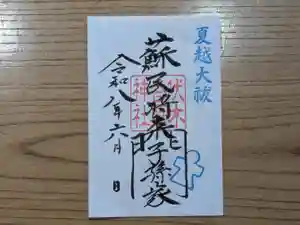 夏越大祓
蘇民将来子孫家
門
令和八年六月
神社